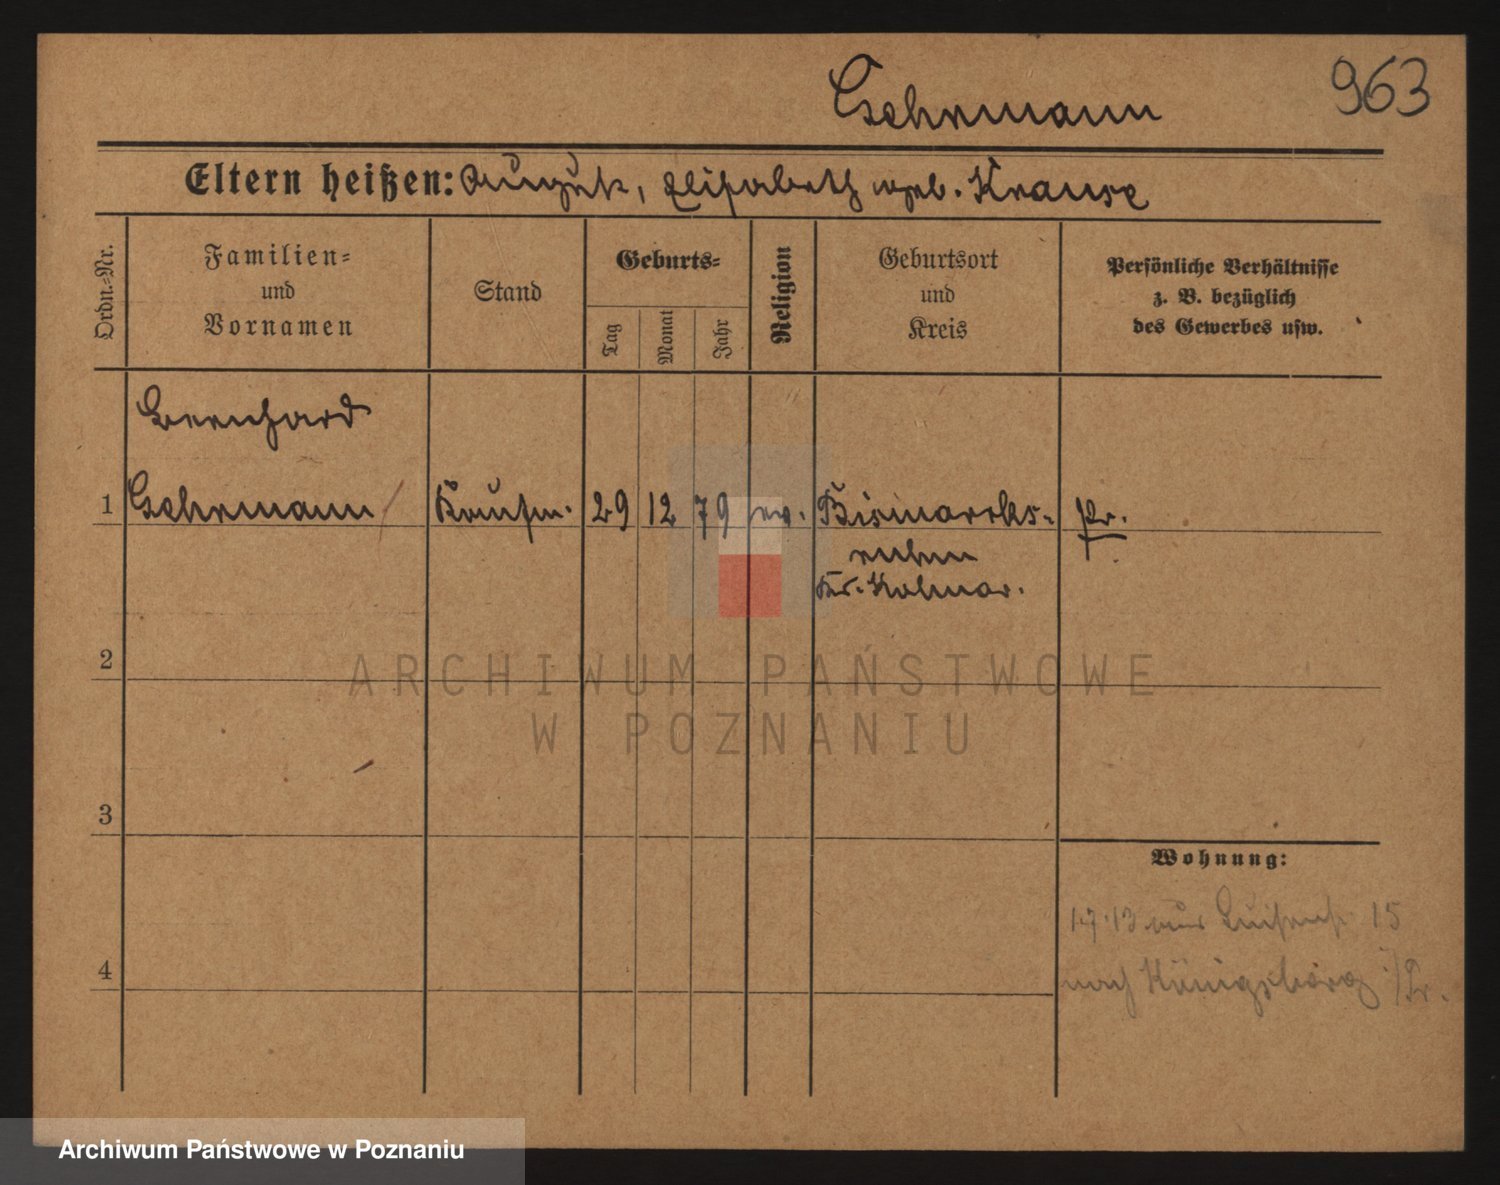 Gehrmann 963
Eltern heißen: August, Elisabeth geb. Krause
Ordn.=Nr.
Familien=
und
Vornamen
Stand
Geburts=
Tag
Monat
Jahr
Religion
Geburtsort
und
Kreis
Persönliche Verhältnisse
z. B. bezüglich
des Gewerbes usw.
Bernhard
1 Gehrmann Kaufm. 29 12 79 ev. Bismarcks- Pr.
ruhm
Kr. Kolmar.
2
ARCHIWUM PAŃSTWOWE
W POZNANIU
3
Wohnung:
1.7.13 aus Luisenst. 15
4
nach Königsberg i/Pr.
Archiwum Państwowe w Poznaniu